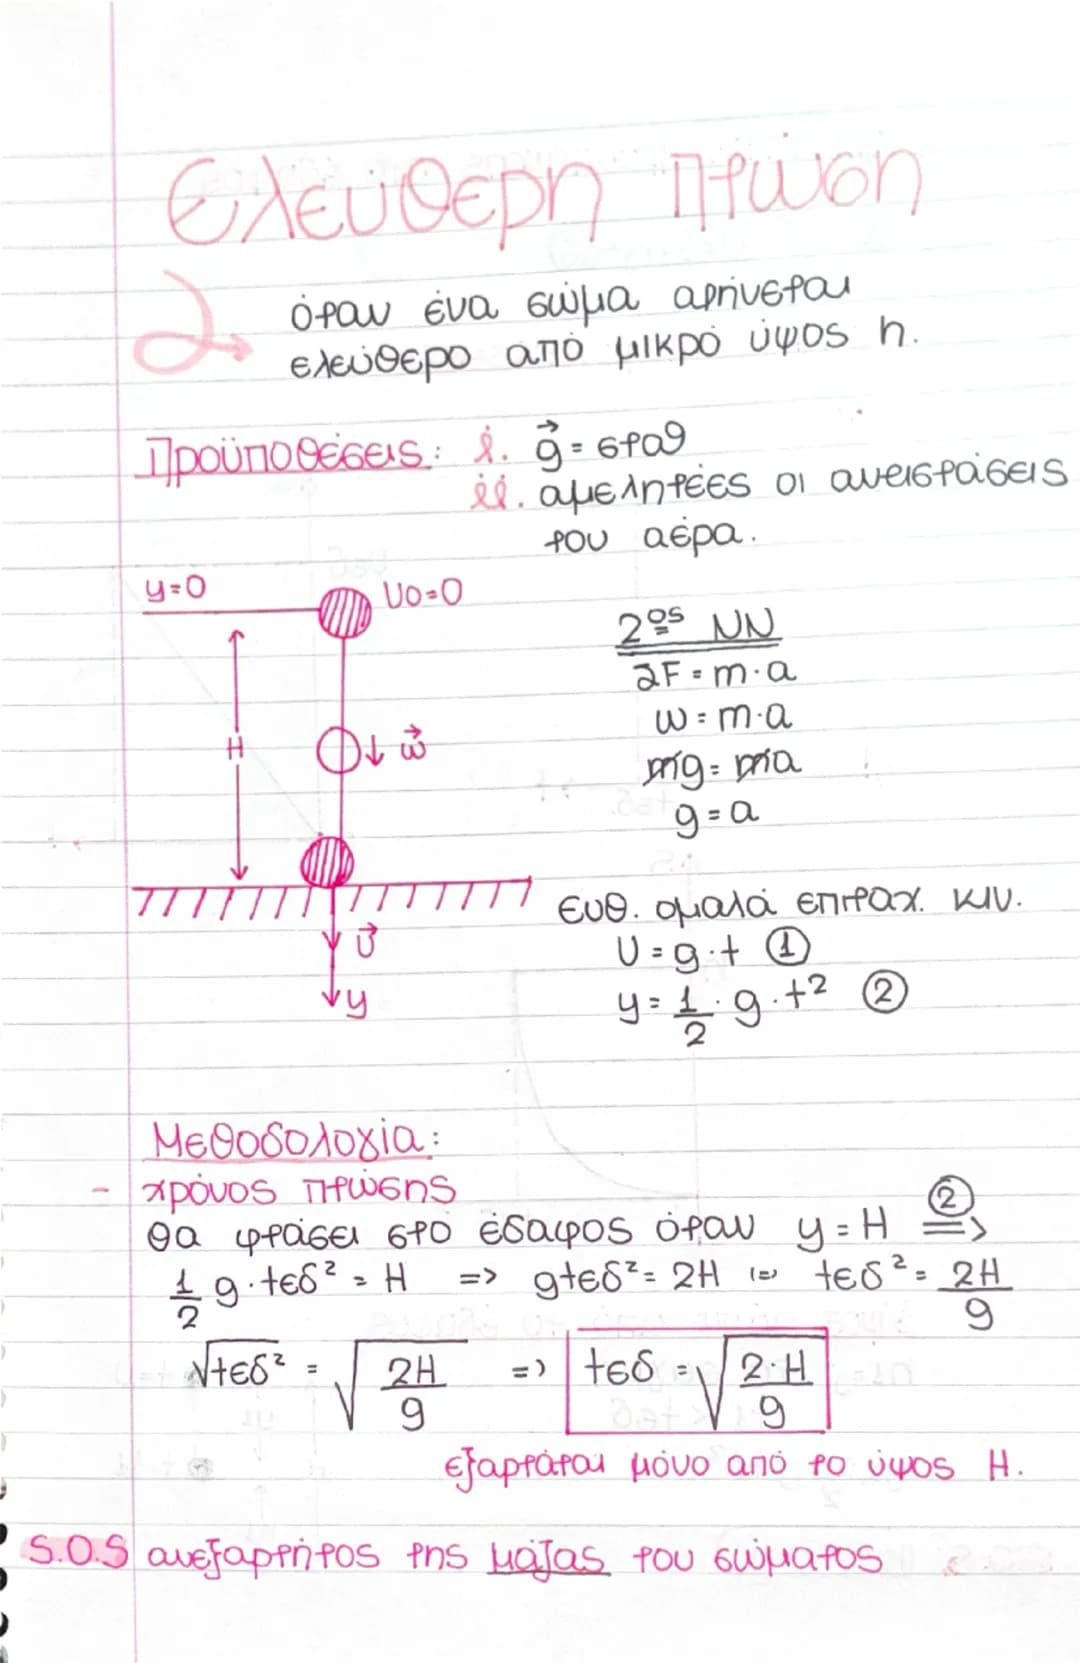 Ελεύθερη Πτώση
όταν ένα σώμα αφήνεται
ελεύθερο από μικρό ύψος h.
Προϋποθέσεις: i. g⃗ = σταθ
ii. αμελητέες οι αντιστάσεις
του αέρα.
y=0
υ0=0
H
w⃗
υ⃗
y
2ος ΝΝ
ΣF = m·a
w = m·a
mg = ma
g = a
ευθ. ομαλά επιταχ. κιν.
υ = g·t ①
y = 1/2 · g · t² ②
Μεθοδολογία:
- χρόνος πτώσης
θα φτάσει στο έδαφος όταν y = H ②=>
1/2 g·tεδ² = H => gtεδ² = 2H (=) tεδ² = 2H/g
√tεδ² = √2H/g => tεδ = √2·H/g
εξαρτάται μόνο από το ύψος H.
S.O.S ανεξαρτήτος της μάζας του σώματος